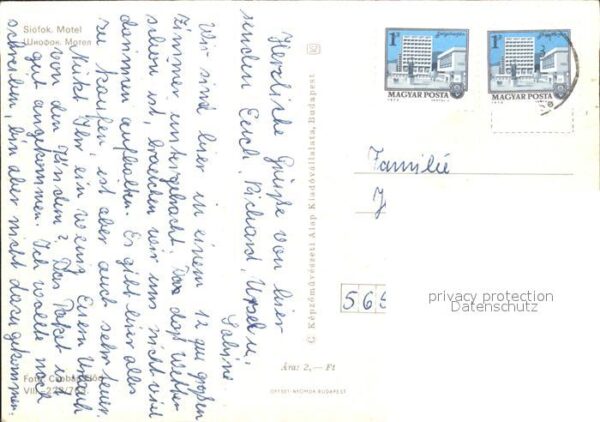 Siófok. Motel
Шиофок. Мотел
Herzliche Grüße von hier
senden Euch, Richard, Ursel u.
Sabine.
Wir sind hier in einem 12 qm großen
Zimmer untergebracht. Da das Wetter
schön ist, brauchen wir uns nicht viel
darinnen aufhalten. Es gibt hier alles
zu kaufen, ist aber auch sehr teuer.
Nützt Ihr ein wenig Euern Urlaub
von den Kindern? Das Paket ist
gut angekommen. Ich wollte noch
schreiben, bin aber nicht dazu gekommen.
Foto:
VIII.
C Képzőművészeti Alap Kiadóvállalata, Budapest
Ára: 2,— Ft
OFFSET-NYOMDA BUDAPEST
1Ft
MAGYAR POSTA
1Ft
MAGYAR POSTA
Familie
565
privacy protection
Datenschutz